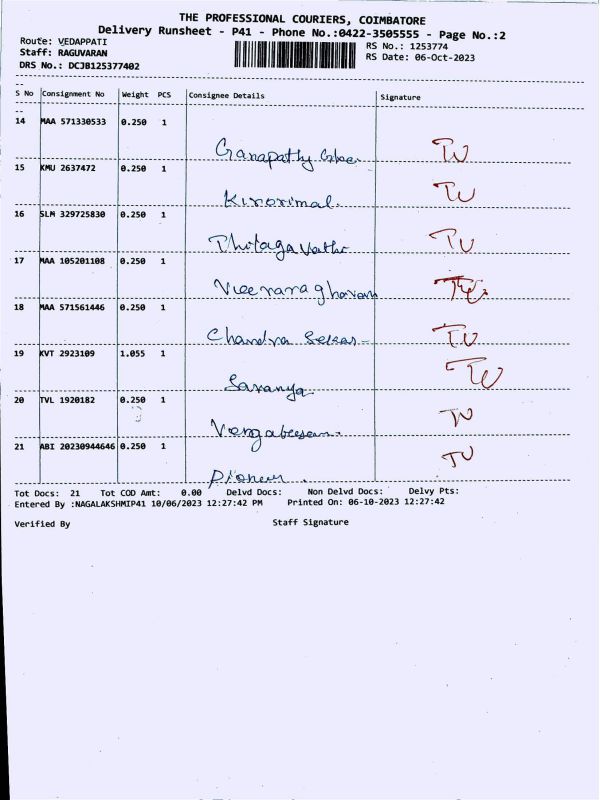 THE PROFESSIONAL COURIERS, COIMBATORE
Delivery Runsheet - P41 - Phone No.:0422-3505555 - Page No.:2
Route: VEDAPPATI
RS No.: 1253774
Staff: RAGUVARAN
RS Date: 06-Oct-2023
DRS No.: DCJB125377402
S No Consignment No Weight PCS Consignee Details Signature
14 MAA 571330533 0.250 1
Ganapathy TV
15 KMU 2637472 0.250 1
Kirorimal. TV
16 SLM 329725830 0.250 1
TV
17 MAA 105201108 0.250 1
Veeraraghavan
18 MAA 571561446 0.250 1
Chandra Sekar TV
19 KVT 2923109 1.055 1
Saranya TV
20 TVL 1920182 0.250 1
TV
21 ABI 20230944646 0.250 1
Pioneer. TV
Tot Docs: 21 Tot COD Amt: 0.00 Delvd Docs: Non Delvd Docs: Delvy Pts:
Entered By :NAGALAKSHMIP41 10/06/2023 12:27:42 PM Printed On: 06-10-2023 12:27:42
Verified By Staff Signature